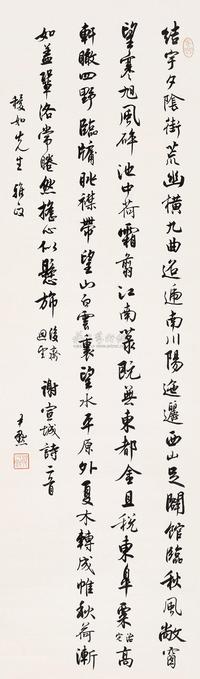 結宇夕陰街荒幽橫九曲迢遞南川陽迤邐西山足闢館臨秋風敞窗
望寒旭風碎池中荷霜翦江南菉既無東都金且稅東皋粟治宅高
軒瞰四野臨牖眺襟帶望山白雲裏望水平原外夏木轉成帷秋荷漸
如蓋鞏洛常睠然搖心似懸旆後齋迴望 謝宣城詩二首 尹默
如先生雅政